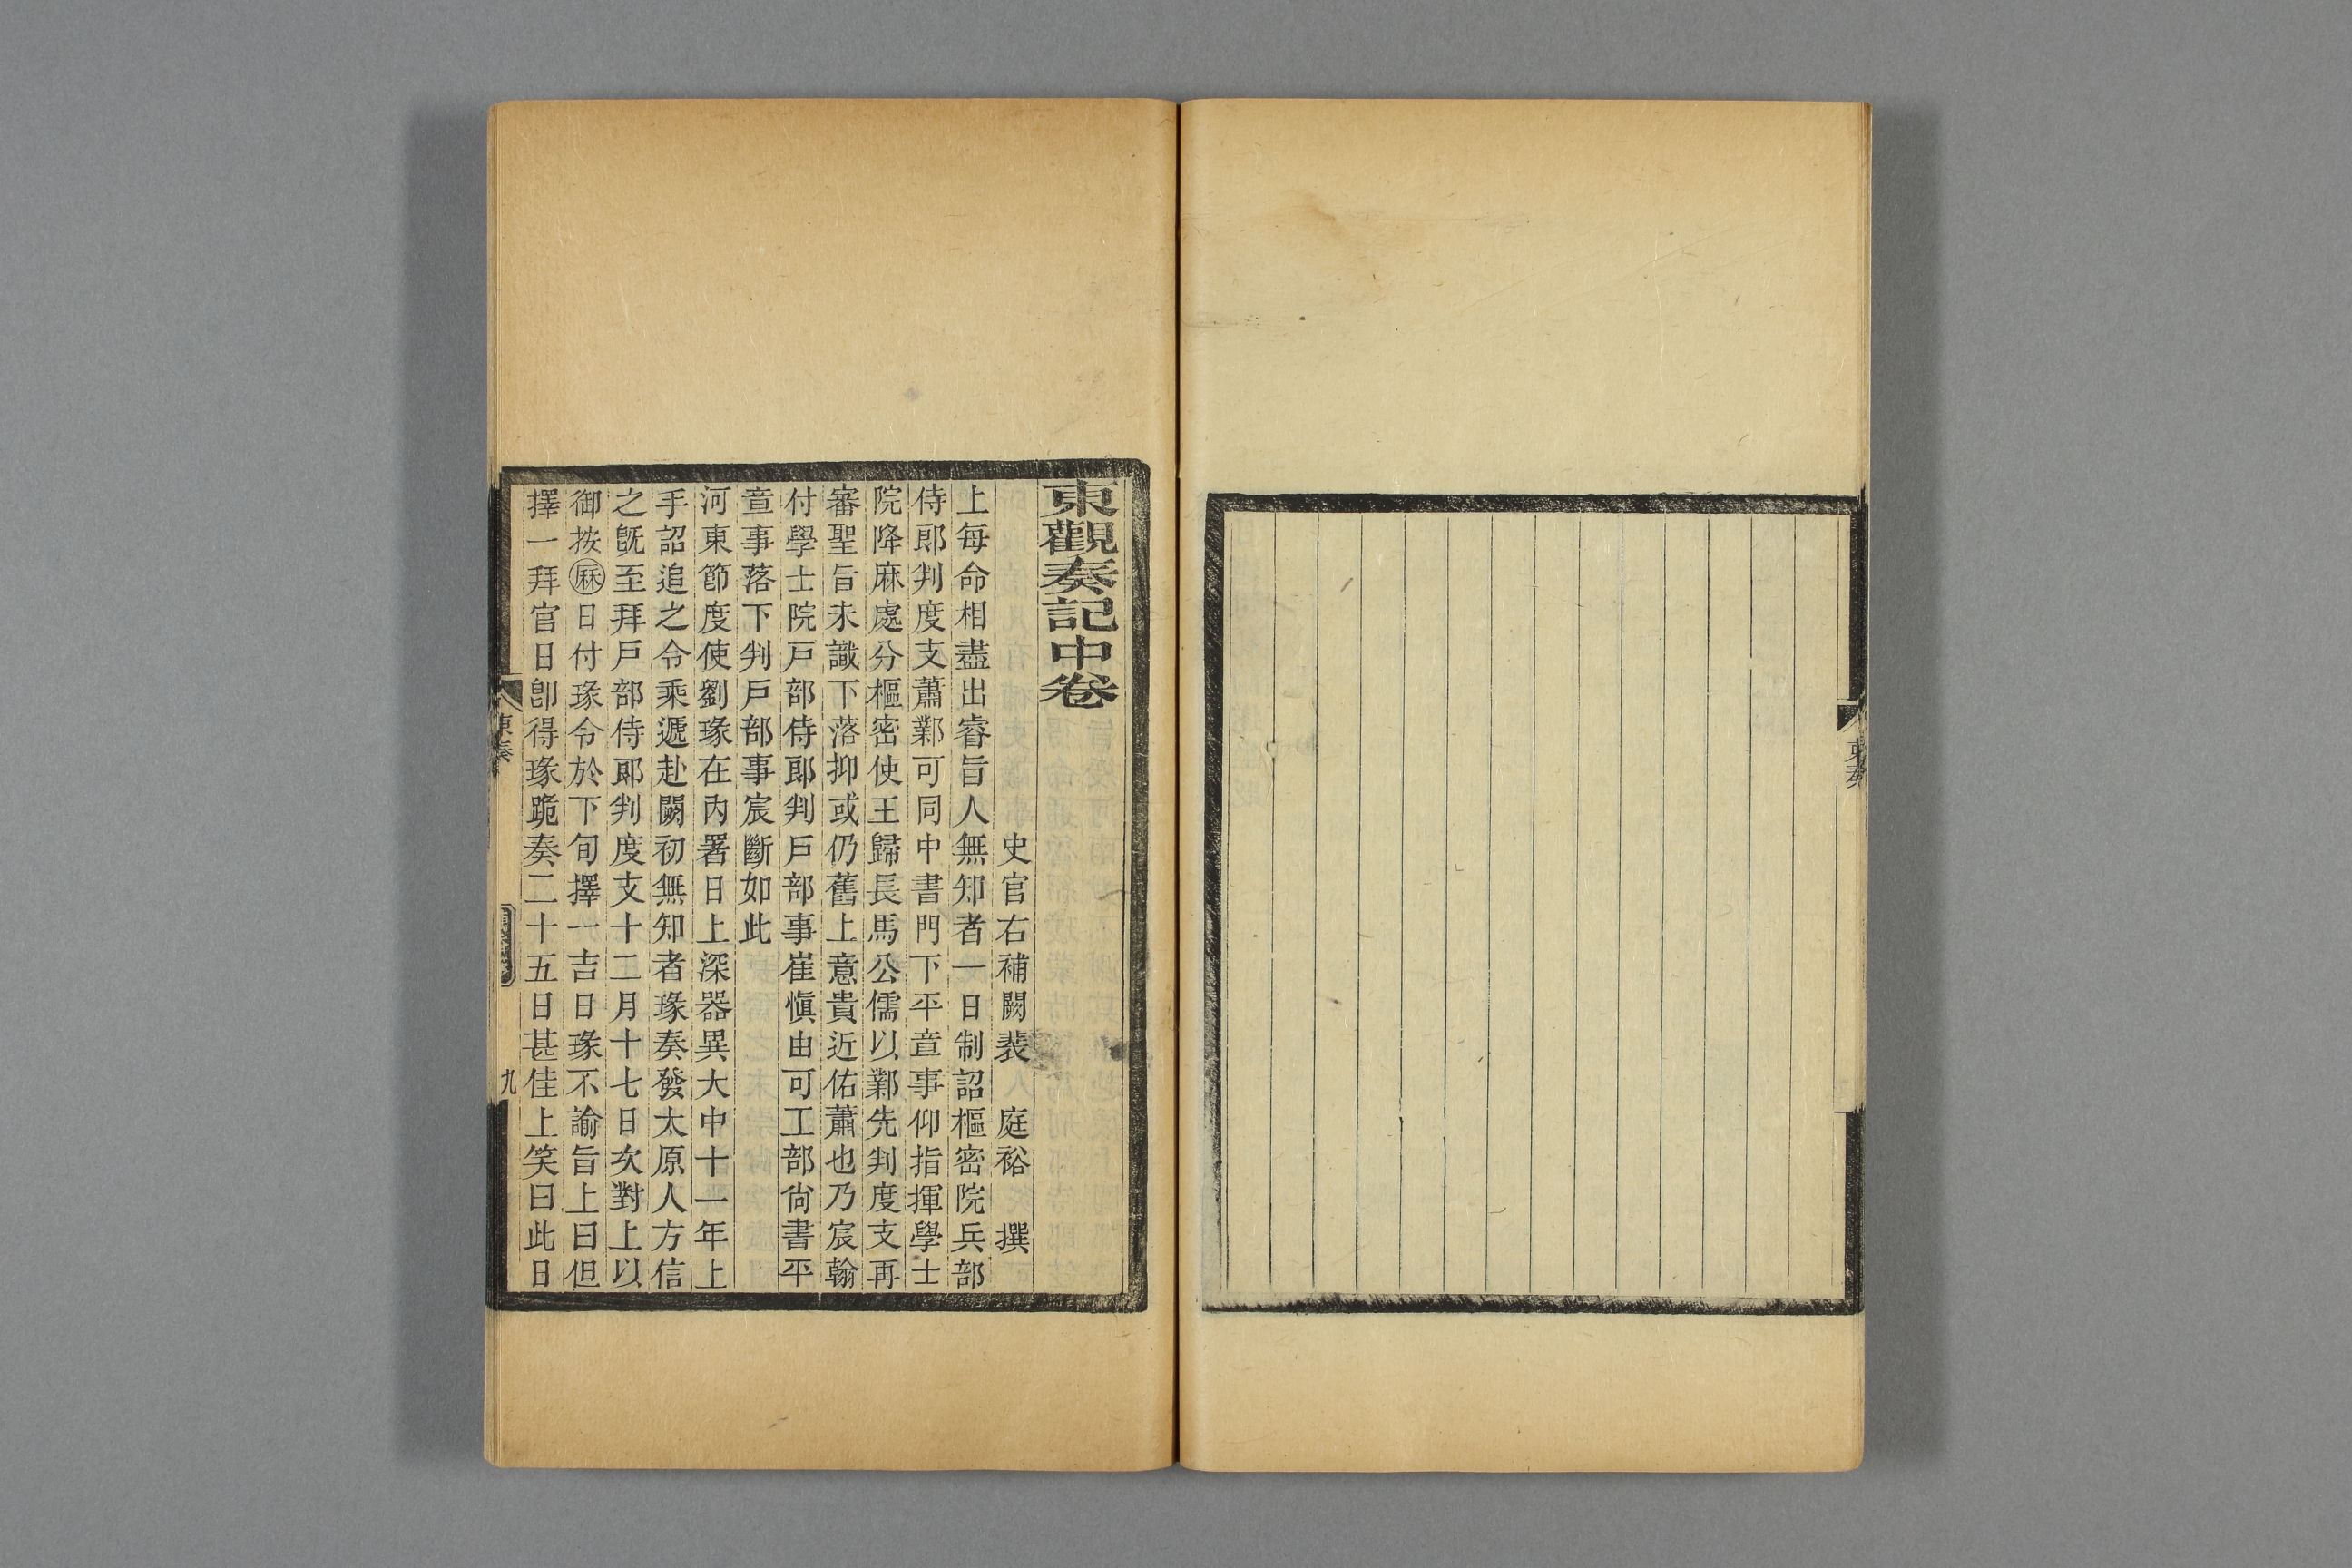 東奏
東觀奏記中卷
史官右補闕裴　庭裕　撰
上每命相盡出睿旨人無知者一日制詔樞密院兵部
侍郎判度支蕭鄴可同中書門下平章事仰指揮學士
院降麻處分樞密使王歸長馬公儒以鄴先判度支再
審聖旨未識下落抑或仍舊上意貴近佑蕭也乃宸翰
付學士院戸部侍郎判戸部事崔愼由可工部尙書平
章事落下判戸部事宸斷如此
河東節度使劉瑑在內署日上深器異大中十一年上
手詔追之令乘遞赴闕初無知者瑑奏發太原人方信
之旣至拜戸部侍郎判度支十二月十七日次對上以
御按麻日付瑑令於下旬擇一吉日瑑不諭旨上曰但
擇一拜官日卽得瑑跪奏二十五日甚佳上笑曰此日
東奏
九